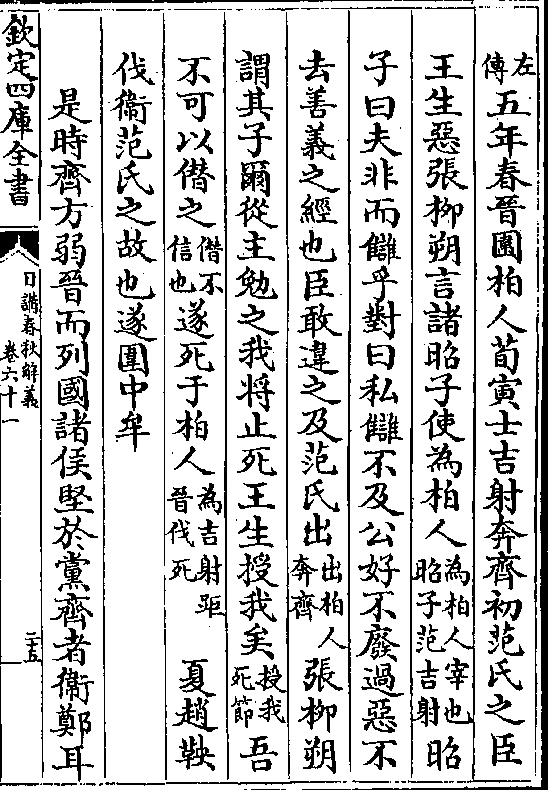 左傳五年春晉圍柏人荀寅士吉射奔齊初范氏之臣
王生惡張柳朔言諸昭子使為柏人為柏人宰也昭子范吉射昭
子曰夫非而讎乎對曰私讎不及公好不廢過惡不
去善義之經也臣敢違之及范氏出出柏人奔齊張柳朔
謂其子爾從主勉之我將止死王生授我矣授我死節吾
不可以僭之僭不信也遂死于柏人為吉射距晉伐死夏趙鞅
伐衞范氏之故也遂圍中牟
是時齊方弱晉而列國諸侯堅於黨齊者衞鄭耳
欽定四庫全書
日講春秋解義
卷六十一
二五